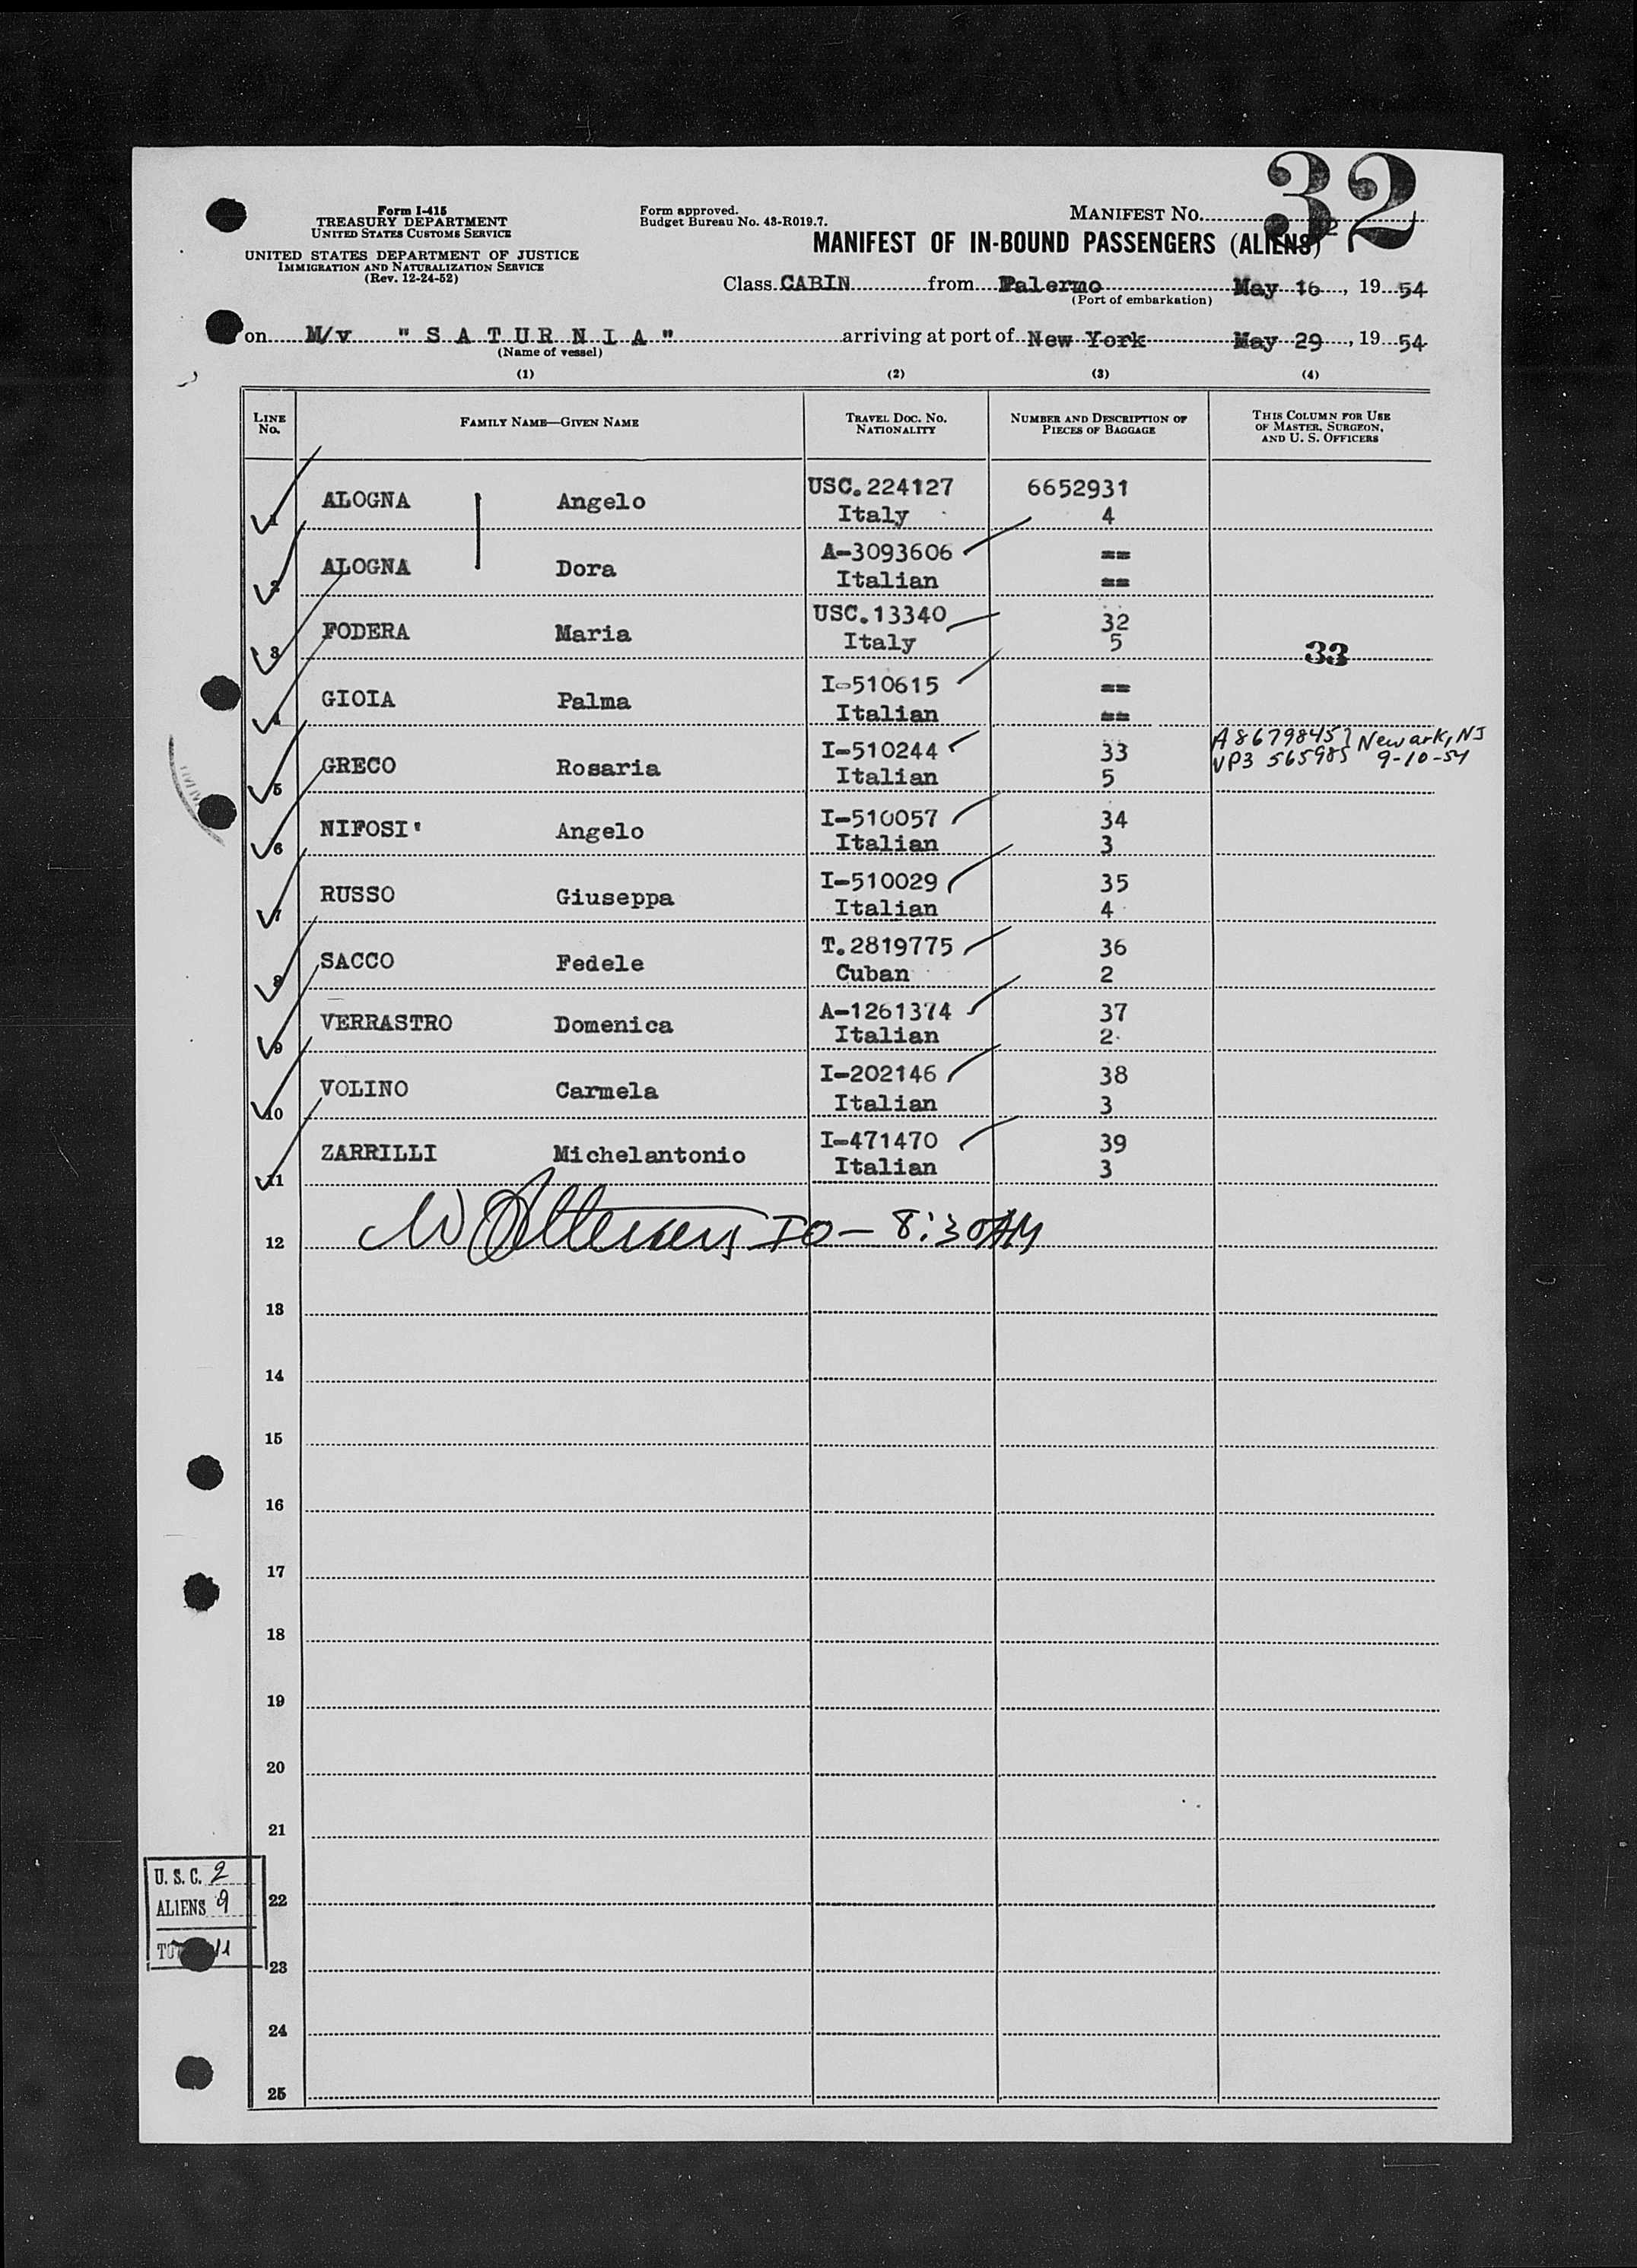 32
Form I-415
TREASURY DEPARTMENT
UNITED STATES CUSTOMS SERVICE
UNITED STATES DEPARTMENT OF JUSTICE
IMMIGRATION AND NATURALIZATION SERVICE
(Rev. 12-24-52)
Form approved.
Budget Bureau No. 43-R019.7.
MANIFEST NO.
MANIFEST OF IN-BOUND PASSENGERS (ALIENS)
Class CABIN from Palermo May 16, 1954
(Port of embarkation)
on M/v "SATURNIA" arriving at port of New York May 29, 1954
(Name of vessel)
(1) (2) (3) (4)
LINE NO. FAMILY NAME—GIVEN NAME TRAVEL DOC. NO. NATIONALITY NUMBER AND DESCRIPTION OF PIECES OF BAGGAGE THIS COLUMN FOR USE OF MASTER, SURGEON, AND U. S. OFFICERS
1 ALOGNA Angelo USC.224127 6652931
Italy 4
2 ALOGNA Dora A-3093606 ==
Italian ==
3 FODERA Maria USC.13340 32
Italy 5 33
4 GIOIA Palma I-510615 ==
Italian ==
5 GRECO Rosaria I-510244 33 A8679845 Newark, NJ
Italian 5 VP3 565985 9-10-54
6 NIFOSI' Angelo I-510057 34
Italian 3
7 RUSSO Giuseppa I-510029 35
Italian 4
8 SACCO Fedele T.2819775 36
Cuban 2
9 VERRASTRO Domenica A-1261374 37
Italian 2
10 VOLINO Carmela I-202146 38
Italian 3
11 ZARRILLI Michelantonio I-471470 39
Italian 3
12 IO - 8:30AM
13
14
15
16
17
18
19
20
21
22
23
24
25
U. S. C. 2
ALIENS 9
11